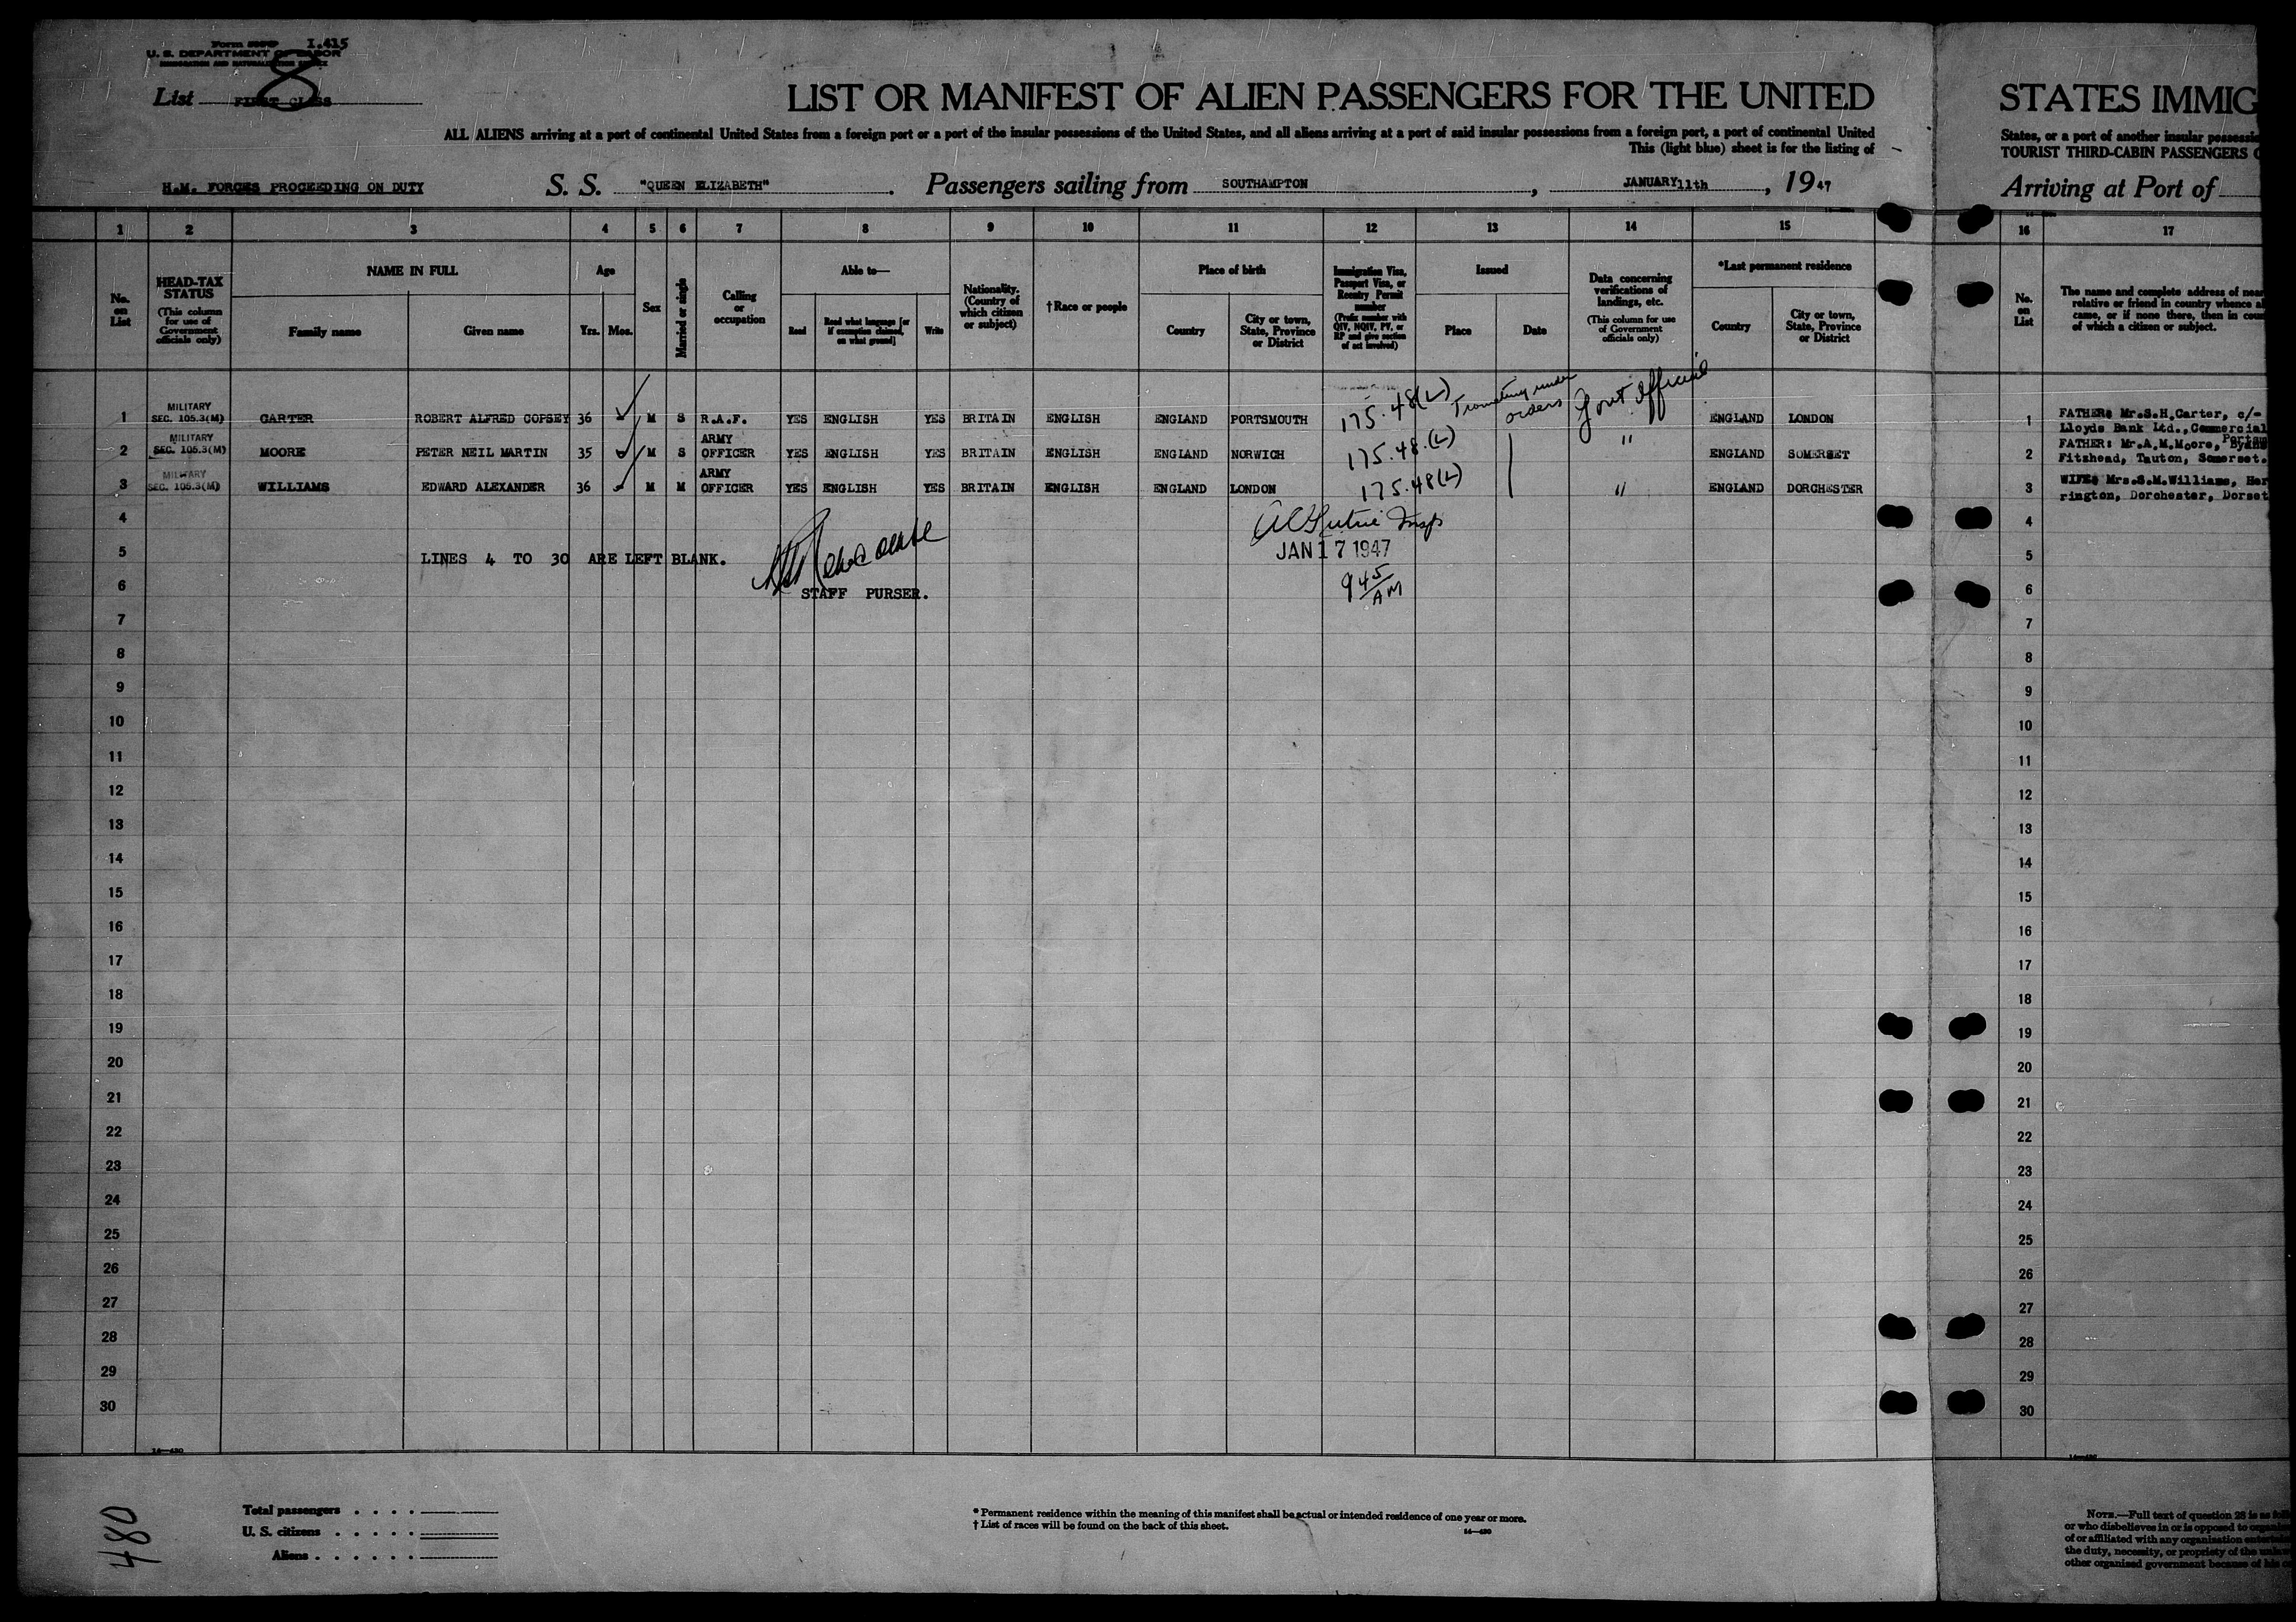 Form I.415
U. S. DEPARTMENT OF LABOR
IMMIGRATION AND NATURALIZATION SERVICE
List FIRST CLASS
8
LIST OR MANIFEST OF ALIEN PASSENGERS FOR THE UNITED
ALL ALIENS arriving at a port of continental United States from a foreign port or a port of the insular possessions of the United States, and all aliens arriving at a port of said insular possessions from a foreign port, a port of continental United
This (light blue) sheet is for the listing of
H.M. FORCES PROCEEDING ON DUTY S. S. "QUEEN ELIZABETH" . Passengers sailing from SOUTHAMPTON , JANUARY 11th , 1947
STATES IMMIG
States, or a port of another insular possessi
TOURIST THIRD-CABIN PASSENGERS O
Arriving at Port of
1 2 3 4 5 6 7 8 9 10 11 12 13 14 15 16 17
No. on List
HEAD-TAX STATUS
(This column for use of Government officials only)
NAME IN FULL
Family name Given name
Age
Yrs. Mos.
Sex
Married or single
Calling or occupation
Able to—
Read
Read what language [or if exemption claimed, on what ground]
Write
Nationality. (Country of which citizen or subject)
†Race or people
Place of birth
Country
City or town, State, Province or District
Immigration Visa, Passport Visa, or Reentry Permit number
(Prefix number with QIV, NQIV, PV, or RP and give section of act involved)
Issued
Place Date
Data concerning verifications of landings, etc.
(This column for use of Government officials only)
*Last permanent residence
Country
City or town, State, Province or District
No. on List
The name and complete address of near
relative or friend in country whence al
came, or if none there, then in coun
of which a citizen or subject.
1 MILITARY SEC. 105.3(M) CARTER ROBERT ALFRED COPSEY 36 M S R.A.F. YES ENGLISH YES BRITAIN ENGLISH ENGLAND PORTSMOUTH 175.48(L) Traveling under orders Govt Official ENGLAND LONDON 1 FATHER: Mr.S.H.Carter, c/-
Lloyds Bank Ltd., Commercial
2 MILITARY SEC. 105.3(M) MOORE PETER NEIL MARTIN 35 M S ARMY OFFICER YES ENGLISH YES BRITAIN ENGLISH ENGLAND NORWICH 175.48.(L) " ENGLAND SOMERSET 2 FATHER: Mr.A.M.Moore,
Fitzhead, Tauton, Somerset.
3 MILITARY SEC. 105.3(M) WILLIAMS EDWARD ALEXANDER 36 M M ARMY OFFICER YES ENGLISH YES BRITAIN ENGLISH ENGLAND LONDON 175.48(L) " ENGLAND DORCHESTER 3 WIFE: Mrs.S.M.Williams, Her
rington, Dorchester, Dorset
4 4
Insp
JAN 17 1947
5 LINES 4 TO 30 ARE LEFT BLANK. 5
9 45 AM
6 STAFF PURSER. 6
7 7
8 8
9 9
10 10
11 11
12 12
13 13
14 14
15 15
16 16
17 17
18 18
19 19
20 20
21 21
22 22
23 23
24 24
25 25
26 26
27 27
28 28
29 29
30 30
14—430
Total passengers . . . .
U. S. citizens . . . . .
Aliens . . . . . .
480
* Permanent residence within the meaning of this manifest shall be actual or intended residence of one year or more.
† List of races will be found on the back of this sheet.
14—430
NOTE.—Full text of question 28 is as
or who disbelieves in or is opposed to
of or affiliated with any organization
the duty, necessity, or propriety of the
other organized government because of